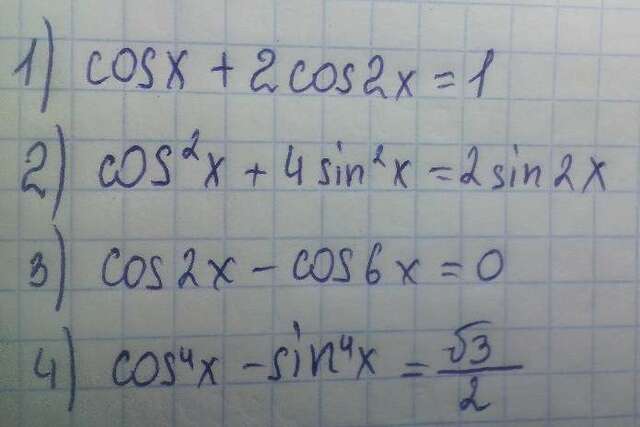 1) cosx + 2cos2x = 1
2) cos²x + 4sin²x = 2sin2x
3) cos2x - cos6x = 0
4) cos⁴x - sin⁴x = √3/2